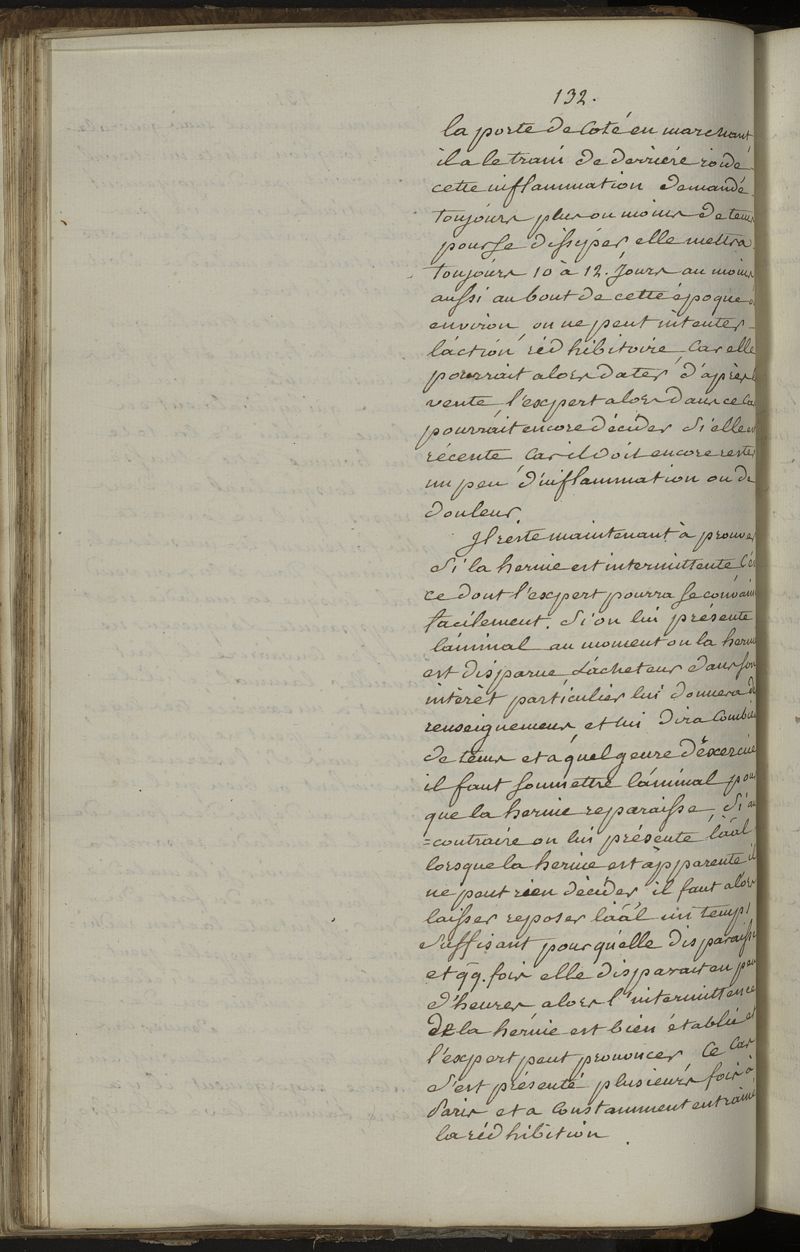 132.
la porte de Coté en marchant
il a le train de derriére roide
cette inflammation demande
toujours plus ou moins de tems
pour se dissiper elle mettra
toujours 10 à 12. jours au moins
aussi au bout de cette époque
environ on ne peut intenter
l'action rédhibitoire Car elle
pourrait alors dater d'après
vente l'expert alors dans ce Cas
pourrait encore décider si elle est
récente Car il doit encore rester
un peu d'inflammation ou de
douleur
Il reste maintenant à prouver
si la hernie est intermittente C'est
ce dont l'expert pourra se convain
facilement. Si on lui présente
l'animal au moment ou la hernie
est disparue L'acheteur dans son
intérèt particulier lui donnera de
renseignemens et lui dira Combien
de tems et a quel genre d'éxercice
il faut soumettre l'animal pour
que la hernie reparaisse, Si au
=contraire on lui présente l'aãl
lorsque la hernie est apparente il
ne peut rien décider il faut alors
laisser reposer l'aãl un temps
suffisant pour qu'elle disparaisse
et qq. fois elle disparait en peu
d'heures alors l'intermittence
de la hernie est bien établie et
l'expert peut prononcer Ce Cas
s'est présenté plusieurs fois à
Paris et a Constamment entrainé
la rédhibition